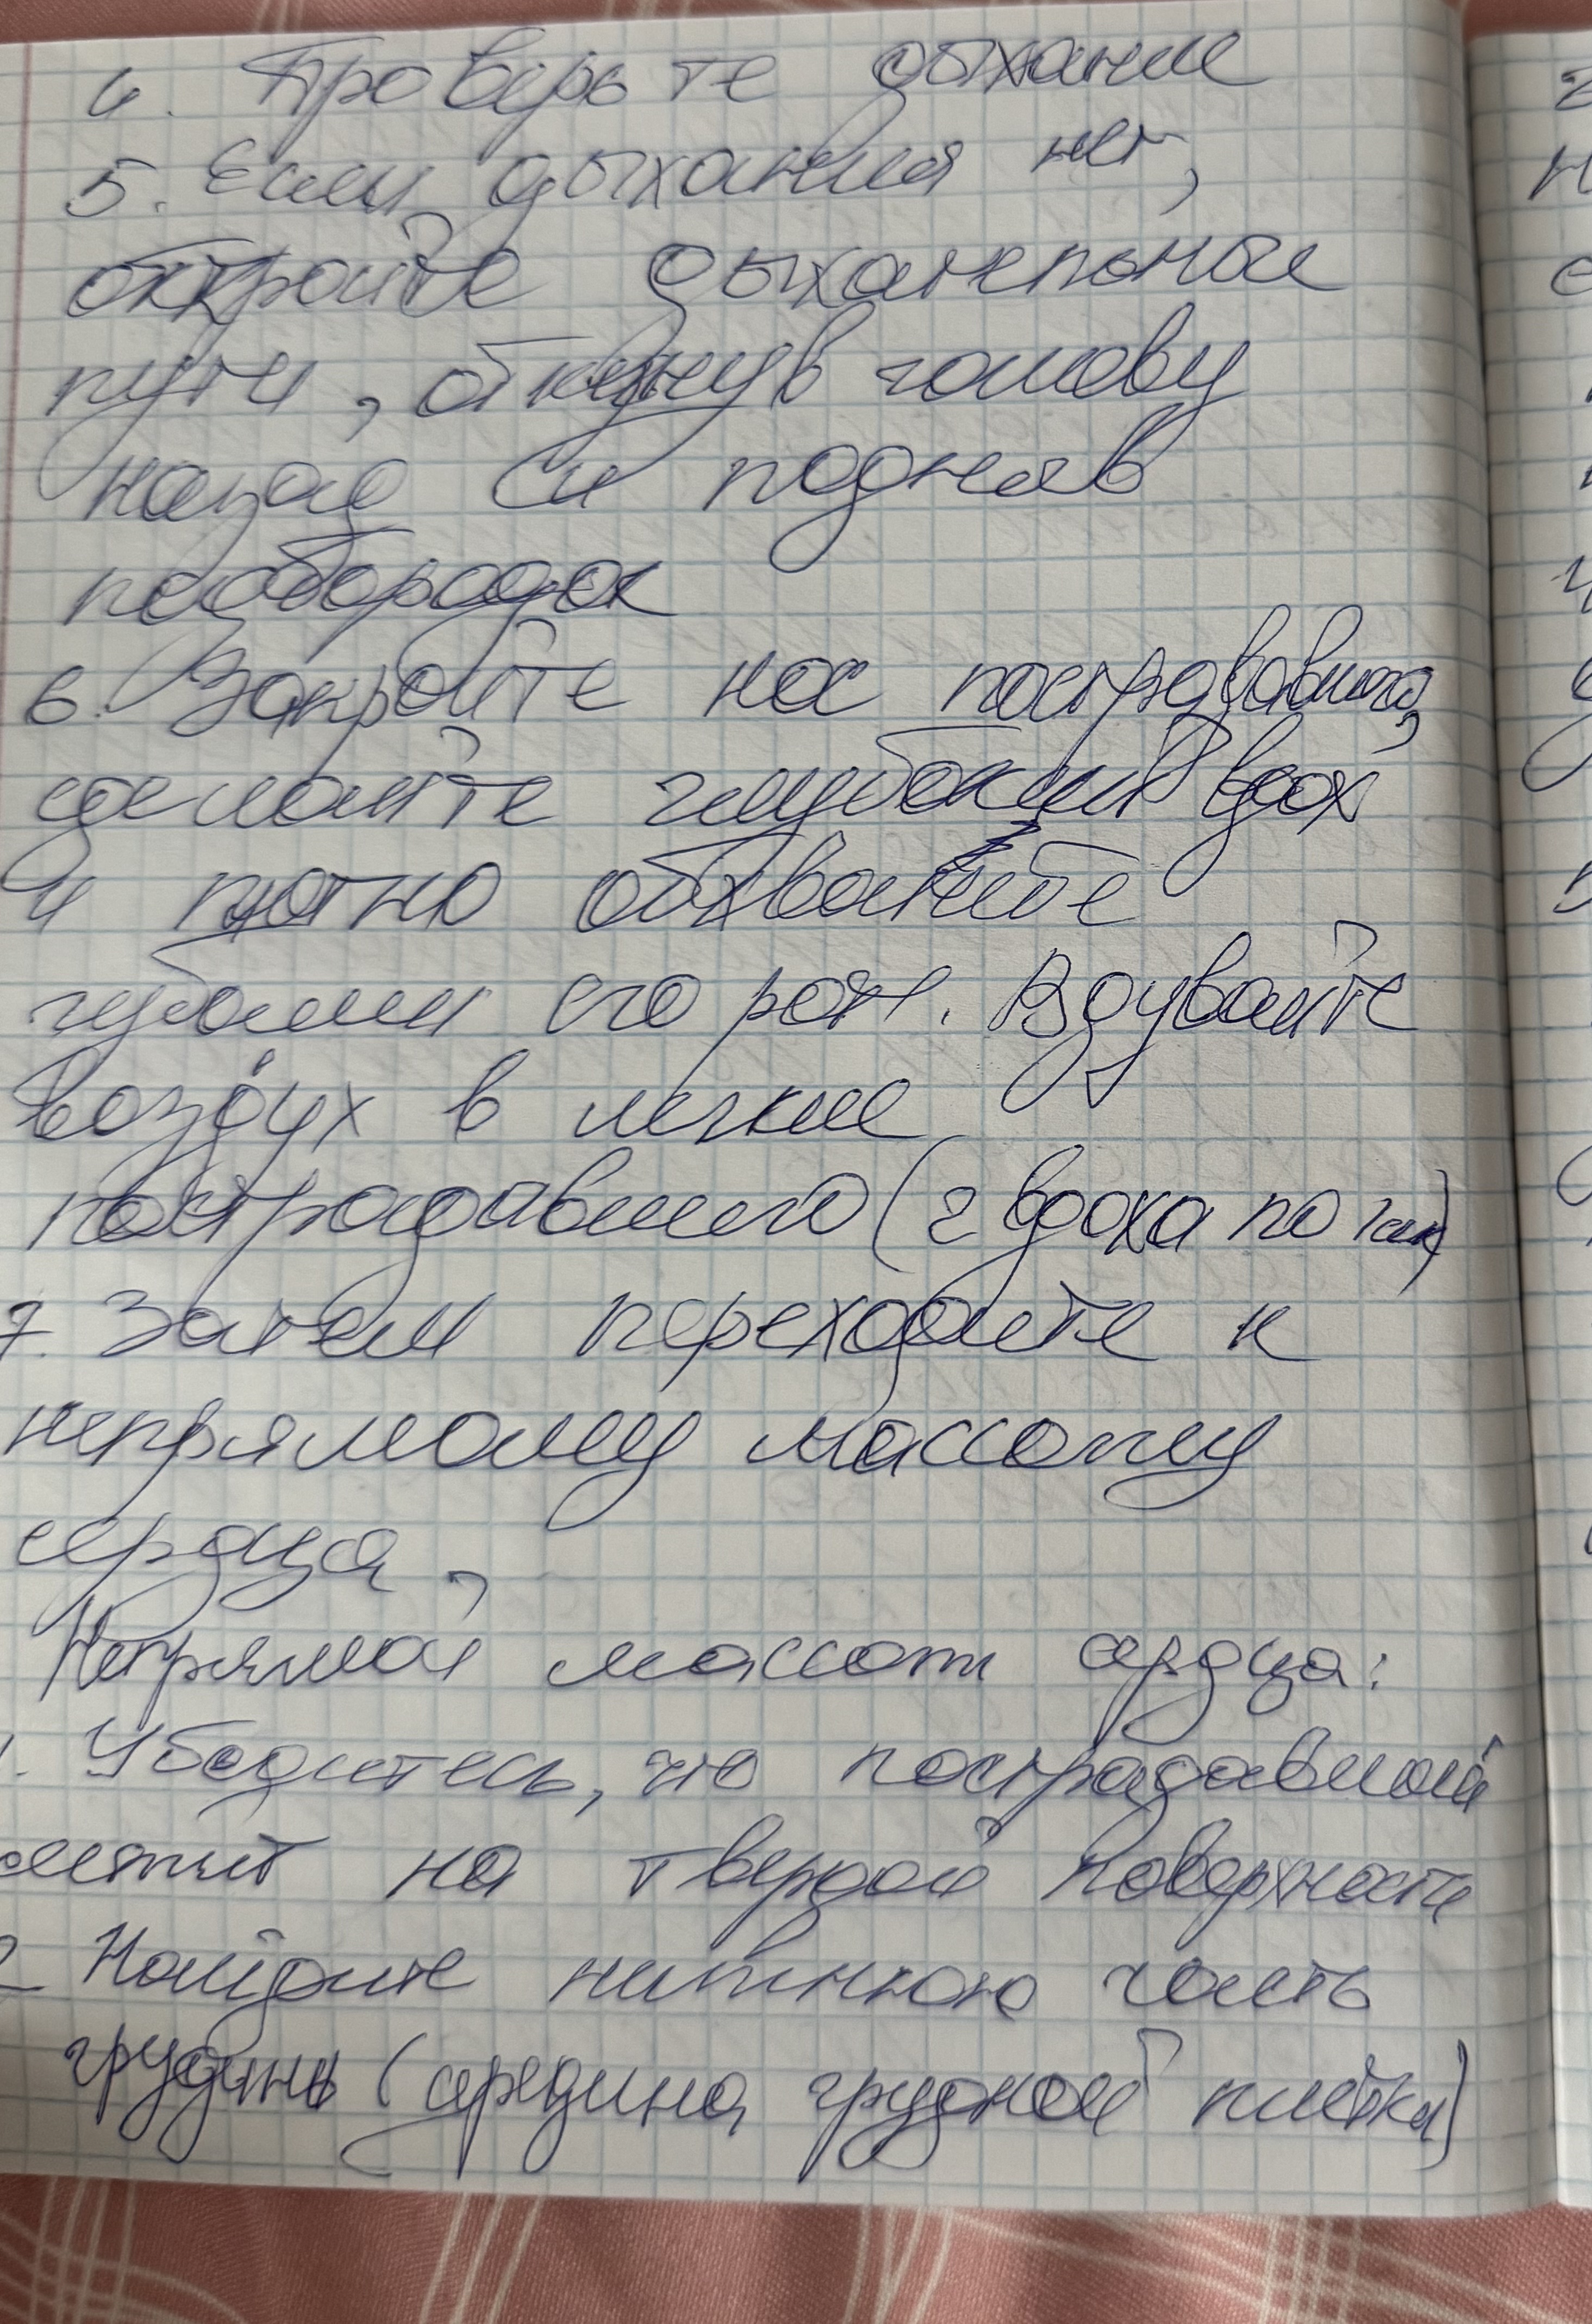 4. Проверьте дыхание
5. Если дыхания нет,
откройте дыхательные
пути, откинув голову
назад и подняв
подбородок
6. Закройте нос пострадавшего,
сделайте глубокий вдох
и плотно обхватите
губами его рот. Вдувайте
воздух в легкие
пострадавшего (2 вдоха по 1сек)
7. Затем переходите к
непрямому массажу
сердца,
Непрямой массаж сердца:
1. Убедитесь, что пострадавший
лежит на твердой поверхности
2 Найдите нижнюю часть
грудины (середина грудной клетки)